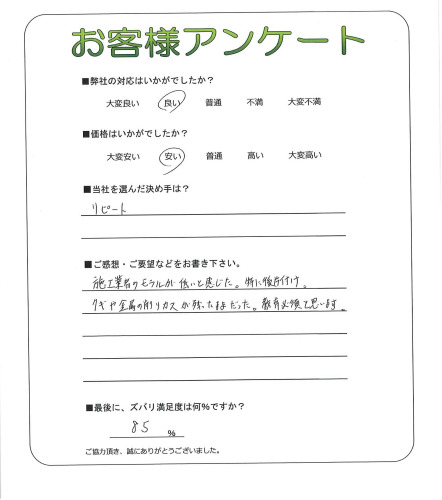 お客様アンケート
■弊社の対応はいかがでしたか？
大変良い 良い 普通 不満 大変不満
■価格はいかがでしたか？
大変安い 安い 普通 高い 大変高い
■当社を選んだ決め手は？
リピート
■ご感想・ご要望などをお書き下さい。
施工業者のモラルが低いと感じた。特に後片付け。
クギや金属の削りカスが残ったままだった。教育必須と思います。
■最後に、ズバリ満足度は何％ですか？
85 ％
ご協力頂き、誠にありがとうございました。